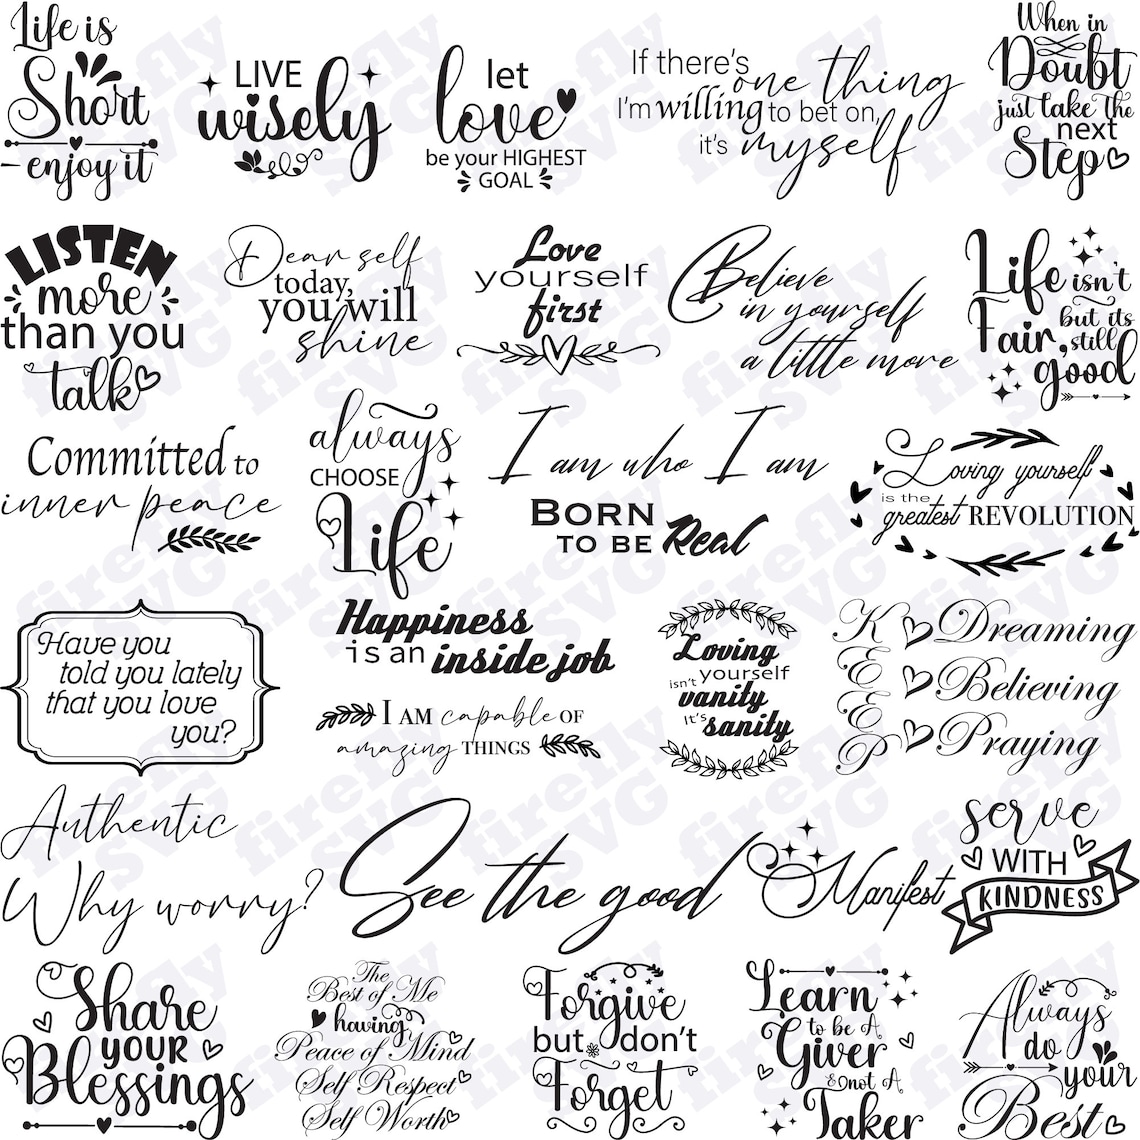 Life is
Short
enjoy it
LIVE
wisely
let
love
be your HIGHEST
GOAL
If there's
one thing
I'm willing to bet on,
it's myself
When in
Doubt
just take the
next
Step
LISTEN
more
than you
talk
Dear self
today,
you will
shine
Love
yourself
first
Believe
in yourself
a little more
Life isn't
Fair, but its
still
good
Committed to
inner peace
always
CHOOSE
Life
I am who I am
BORN
TO BE Real
Loving yourself
is the
greatest REVOLUTION
Have you
told you lately
that you love
you?
Happiness
is an inside job
I AM capable OF
amazing THINGS
Loving
yourself
isn't vanity
It's sanity
KEEP
Dreaming
Believing
Praying
Authentic
Why worry?
See the good
Manifest
serve
WITH
KINDNESS
Share
YOUR
Blessings
The
Best of Me
having
Peace of Mind
Self Respect
Self Worth
Forgive
but don't
Forget
Learn
to be A
Giver
& not A
Taker
Always
do your
Best
firefly
SVG